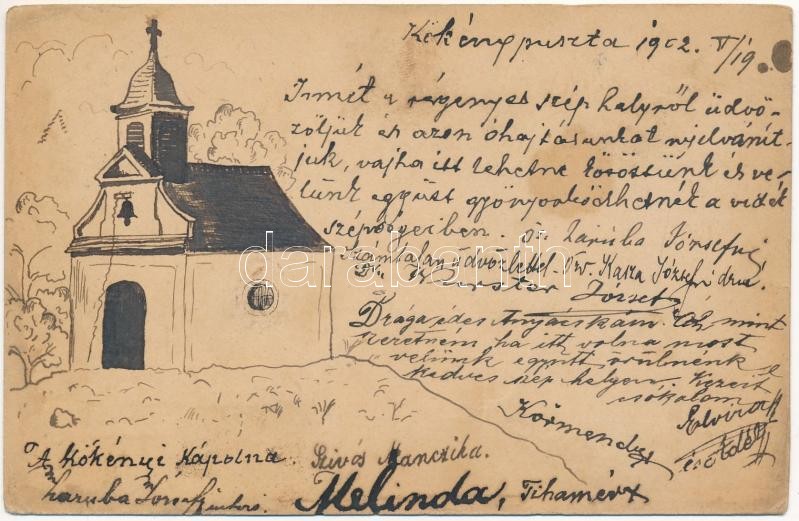 Kökénypuszta 1902. V/19.
Ismét a regényes szép helyről üdvö-
zöljük és azon óhajtásunkat nyilvánít-
juk, vajha itt lehetne köröttünk és ve-
lünk együtt gyönyörködhetnék a vidék
szépségeiben. Dr Zaruba Józsefné
Számtalan üdvözlettel. Özv. Kasza Józsefné
József
Drága édes Anyácskám. mint
szeretném ha itt volna most
velünk együtt örülnénk e
kedves szép helyen. Kezeit
csókolom
Elvira
Körmendy
A Kökényi Kápolna. Szivós Manczika.
Zaruba József
Melinda, Tihamér
darabanth